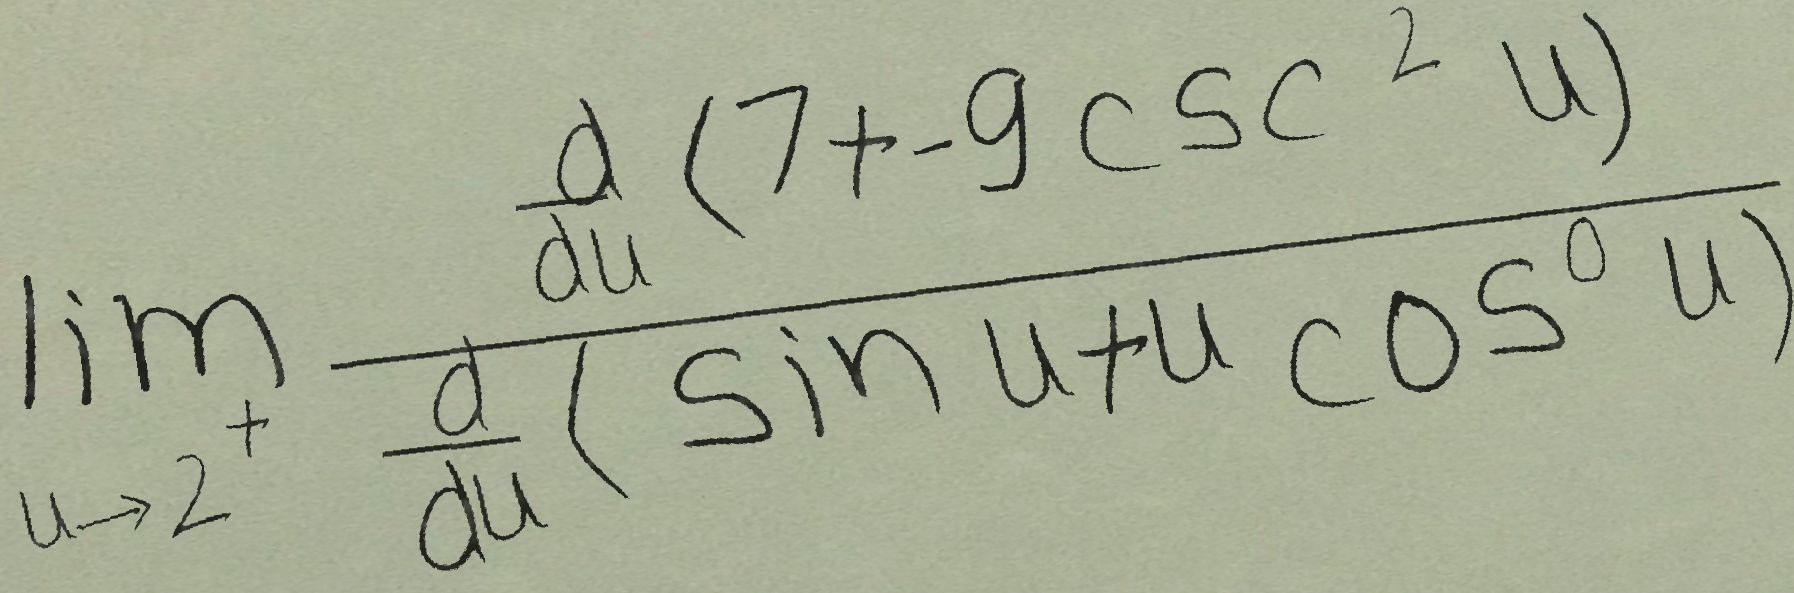 \lim_{u \to 2^+} \frac{\frac{d}{du}(7+-9\csc^2 u)}{\frac{d}{du}(\sin u+u\cos^0 u)}